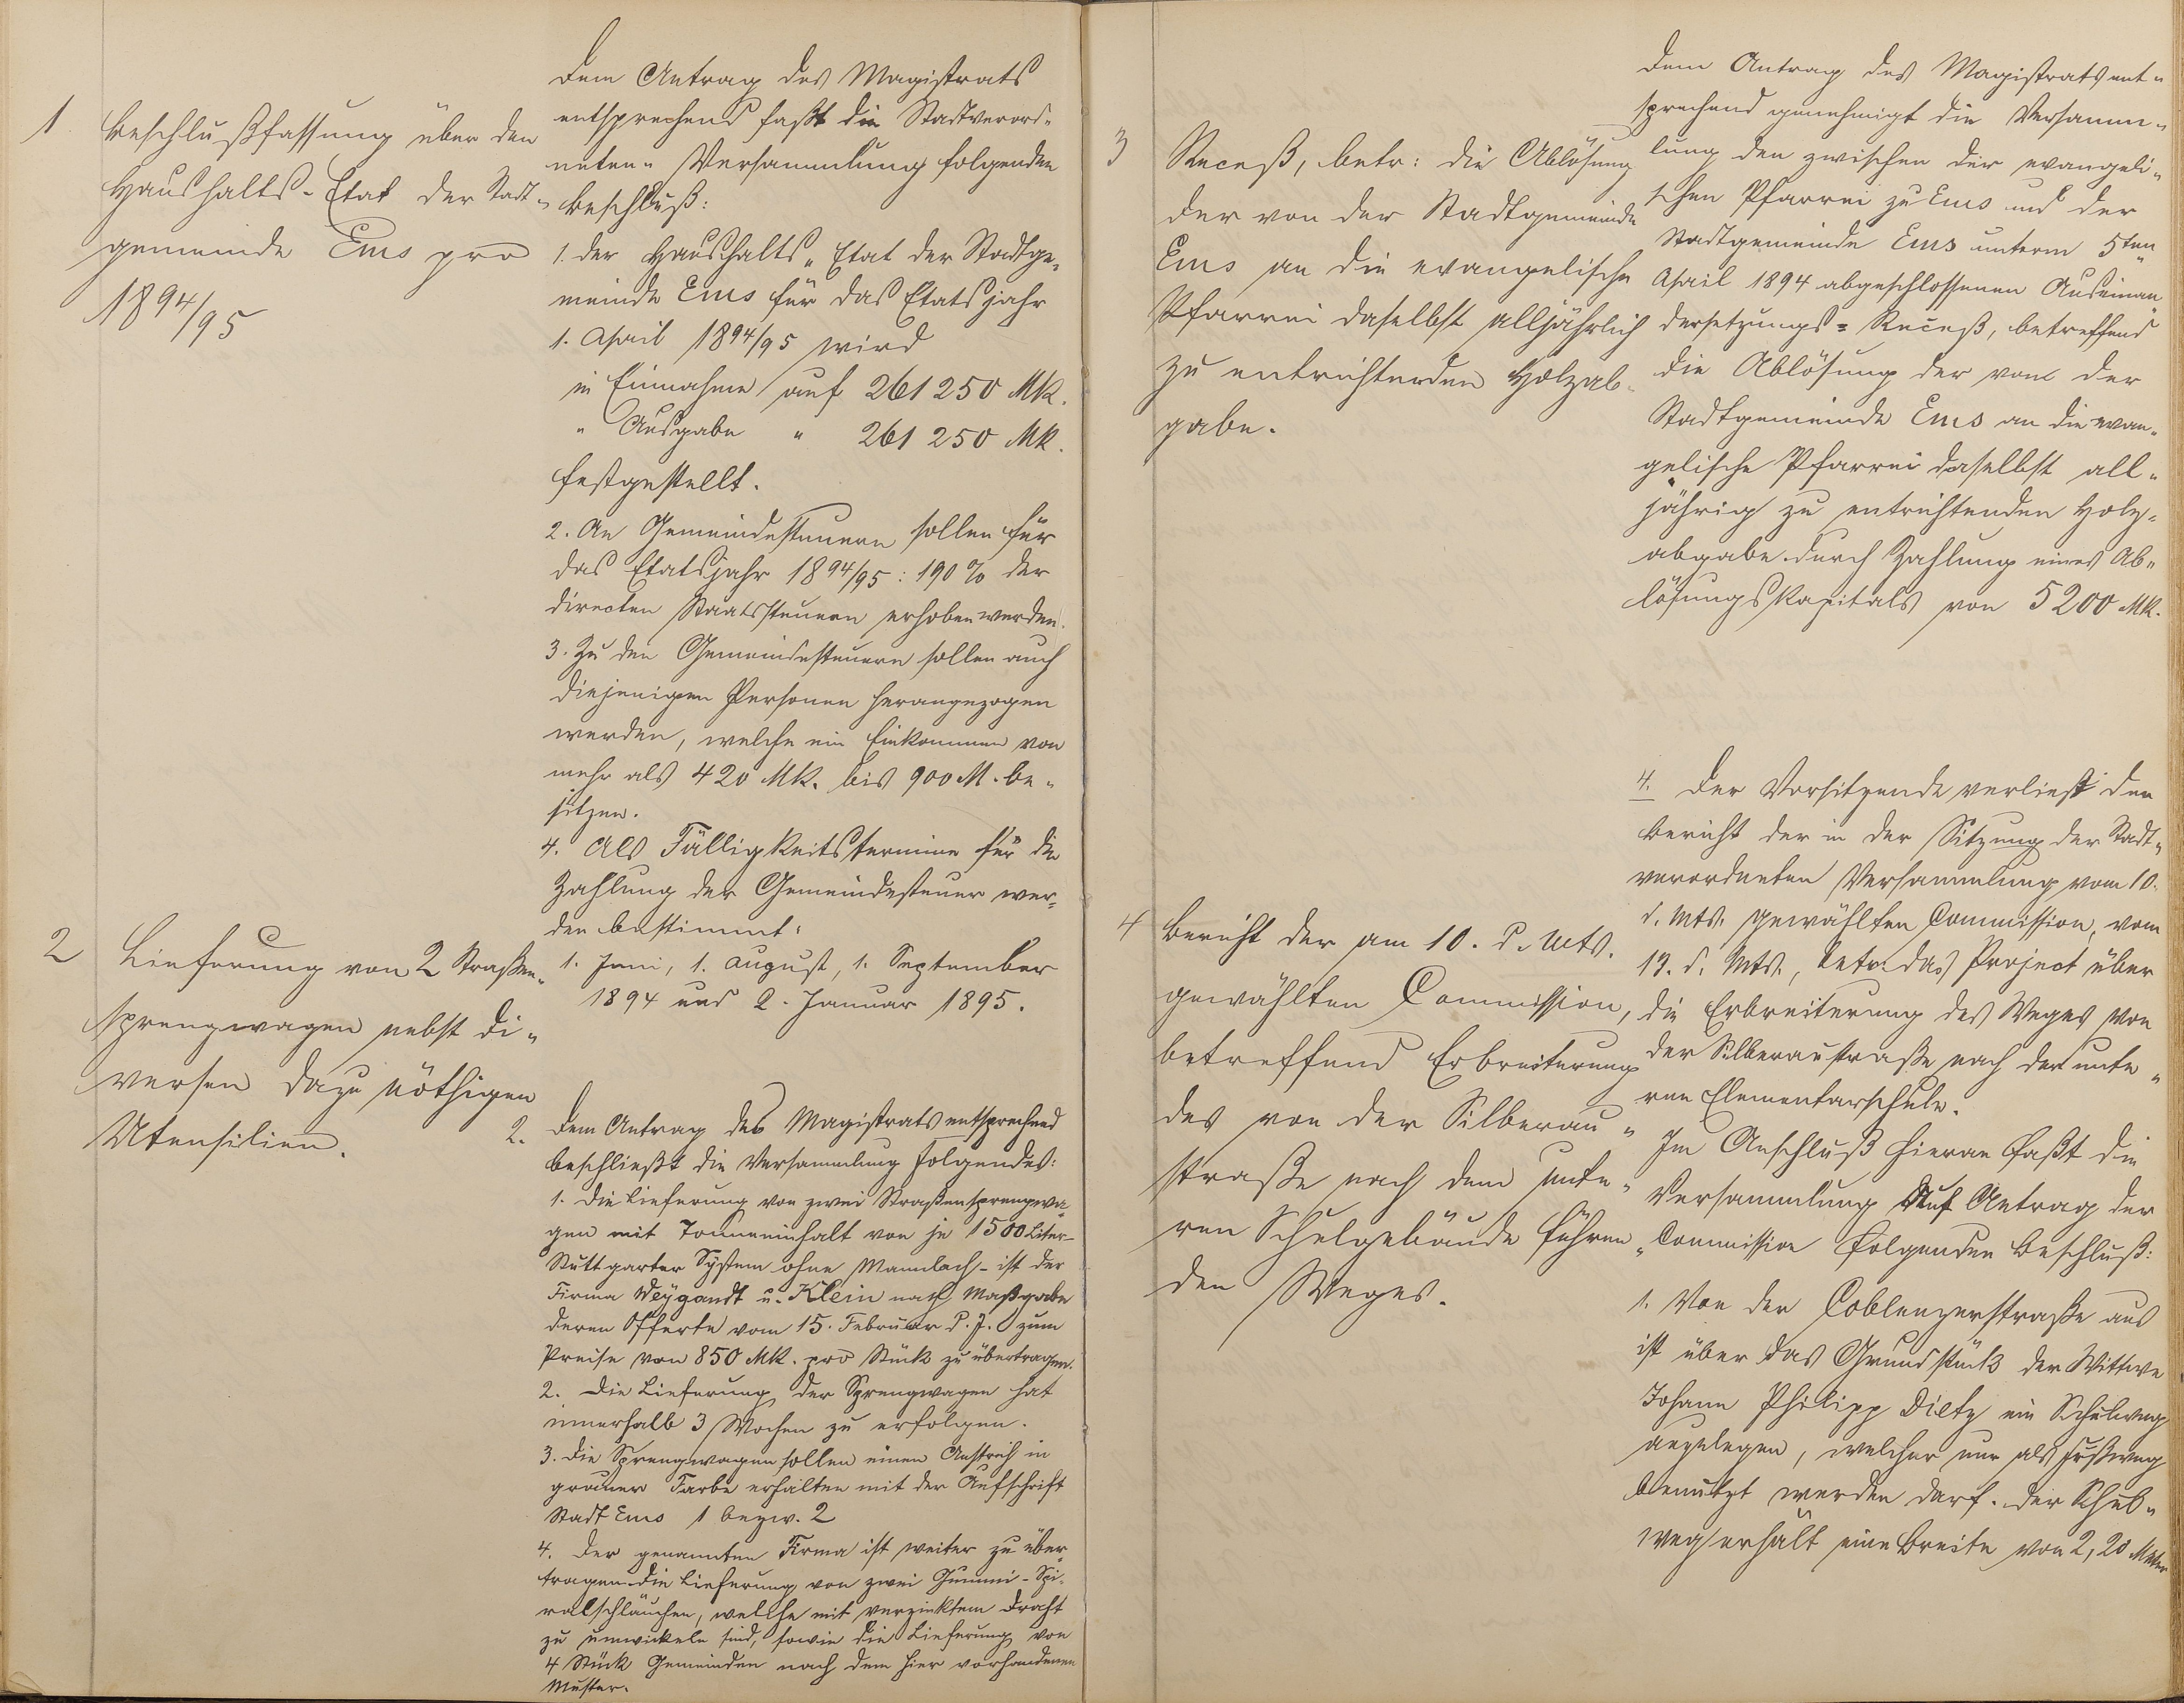 1
Beschlußfassung über den
Haushalts-Etat der Stadt-
gemeinde Ems pro
1894/95
Dem Antrag des Magistrats
entsprechend faßt die Stadtverord-
neten-Versammlung folgenden
Beschluß:
1. Der Haushalts-Etat der Stadtge-
meinde Ems für das Etatsjahr
1. April 1894/95 wird
in Einnahme auf 261250 Mk.
" Ausgabe " 261250 Mk.
festgestellt.
2. An Gemeindesteuern sollen für
das Etatsjahr 1894/95: 190% der
directen Staatssteuern erhoben werden.
3. Zu den Gemeindesteuern sollen auch
diejenigen Personen herangezogen
werden, welche ein Einkommen von
mehr als 420 Mk. bis 900 M. be-
sitzen.
4. Als Fälligkeitstermine für die
Zahlung der Gemeindesteuer wer-
den bestimmt:
1. Juni, 1. August, 1. September
1894 und 2. Januar 1895.
2
Lieferung von 2 Straßen-
sprengwagen nebst di-
versen dazu nöthigen
Utensilien.
2. Dem Antrag des Magistrats entsprechend
beschließt die Versammlung folgendes:
1. Die Lieferung von zwei Straßensprengwa-
gen mit Tonneninhalt von je 1500 Liter-
Stuttgarter System ohne Mannloch - ist der
Firma Weygandt u. Klein nach Maßgabe
deren Offerte vom 15. Februar d. J. zum
Preise von 850 Mk. pro Stück zu übertragen.
2. Die Lieferung der Sprengwagen hat
innerhalb 3 Wochen zu erfolgen.
3. Die Sprengwagen sollen einen Anstrich in
grauer Farbe erhalten mit der Aufschrift
Stadt Ems 1 bezw. 2
4. Der genannten Firma ist weiter zu über-
tragen die Lieferung von zwei Gummi-Spi-
ralschläuchen, welche mit verzinktem Draht
zu umwickeln sind, sowie die Lieferung von
4 Stück Gewinden nach dem hier vorhandenen
Muster.
3
Receß, betr: die Ablösung
der von der Stadtgemeinde
Ems an die evangelische
Pfarrei daselbst alljährlich
zu entrichtenden Holzab-
gabe.
Dem Antrag des Magistrats ent-
sprechend genehmigt die Versamm-
lung den zwischen der evangeli-
schen Pfarrei zu Ems und der
Stadtgemeinde Ems unterm 5ten
April 1894 abgeschlossenen Auseinan-
dersetzungs-Receß, betreffend
die Ablösung der von der
Stadtgemeinde Ems an die evan-
gelische Pfarrei daselbst all-
jährig zu entrichtenden Holz-
abgabe durch Zahlung eines Ab-
lösungskapitals von 5200 Mk.
4
Bericht der am 10. d. Mts.
gewählten Commission,
betreffend Erbreiterung
des von der Silberau-
straße nach dem unte-
ren Schulgebäude führen-
den Weges.
4. Der Vorsitzende verließt den
Bericht der in der Sitzung der Stadt-
verordneten Versammlung vom 10.
d. Mts. gewählten Commission, vom
19. d. Mts., betr. das Project über
die Erbreiterung des Weges von
der Silberaustraße nach der unte-
ren Elementarschule.
Im Anschluß hieran faßt die
Versammlung auf Antrag der
Commission folgenden Beschluß:
1. Von der Coblenzerstraße aus
ist über das Grundstück der Wittwe
Johann Philipp Dietz ein Schulweg
anzulegen, welcher nur als Fußweg
benutzt werden darf. Der Schul-
weg erhält eine Breite von 2,20 Meter